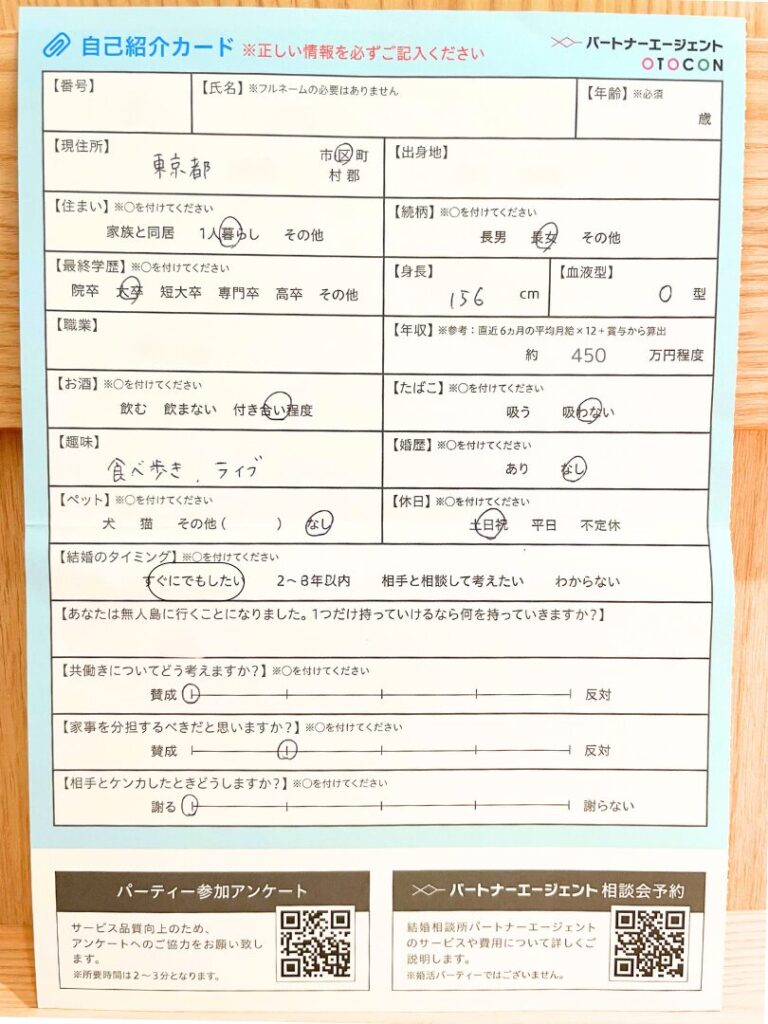 自己紹介カード ※正しい情報を必ずご記入ください
パートナーエージェント
OTOCON
【番号】
【氏名】※フルネームの必要はありません
【年齢】※必須
歳
【現住所】
東京都
市 区 町
村 郡
【出身地】
【住まい】※○を付けてください
家族と同居 1人暮らし その他
【続柄】※○を付けてください
長男 長女 その他
【最終学歴】※○を付けてください
院卒 大卒 短大卒 専門卒 高卒 その他
【身長】
156 cm
【血液型】
O 型
【職業】
【年収】※参考：直近6ヵ月の平均月給×12＋賞与から算出
約 450 万円程度
【お酒】※○を付けてください
飲む 飲まない 付き合い程度
【たばこ】※○を付けてください
吸う 吸わない
【趣味】
食べ歩き、ライブ
【婚歴】※○を付けてください
あり なし
【ペット】※○を付けてください
犬 猫 その他（ ） なし
【休日】※○を付けてください
土日祝 平日 不定休
【結婚のタイミング】※○を付けてください
すぐにでもしたい 2～3年以内 相手と相談して考えたい わからない
【あなたは無人島に行くことになりました。1つだけ持っていけるなら何を持っていきますか？】
【共働きについてどう考えますか？】※○を付けてください
賛成 反対
【家事を分担するべきだと思いますか？】※○を付けてください
賛成 反対
【相手とケンカしたときどうしますか？】※○を付けてください
謝る 謝らない
パーティー参加アンケート
サービス品質向上のため、
アンケートへのご協力をお願い致し
ます。
※所要時間は2～3分となります。
パートナーエージェント 相談会予約
結婚相談所パートナーエージェント
のサービスや費用について詳しくご
説明します。
※婚活パーティーではございません。